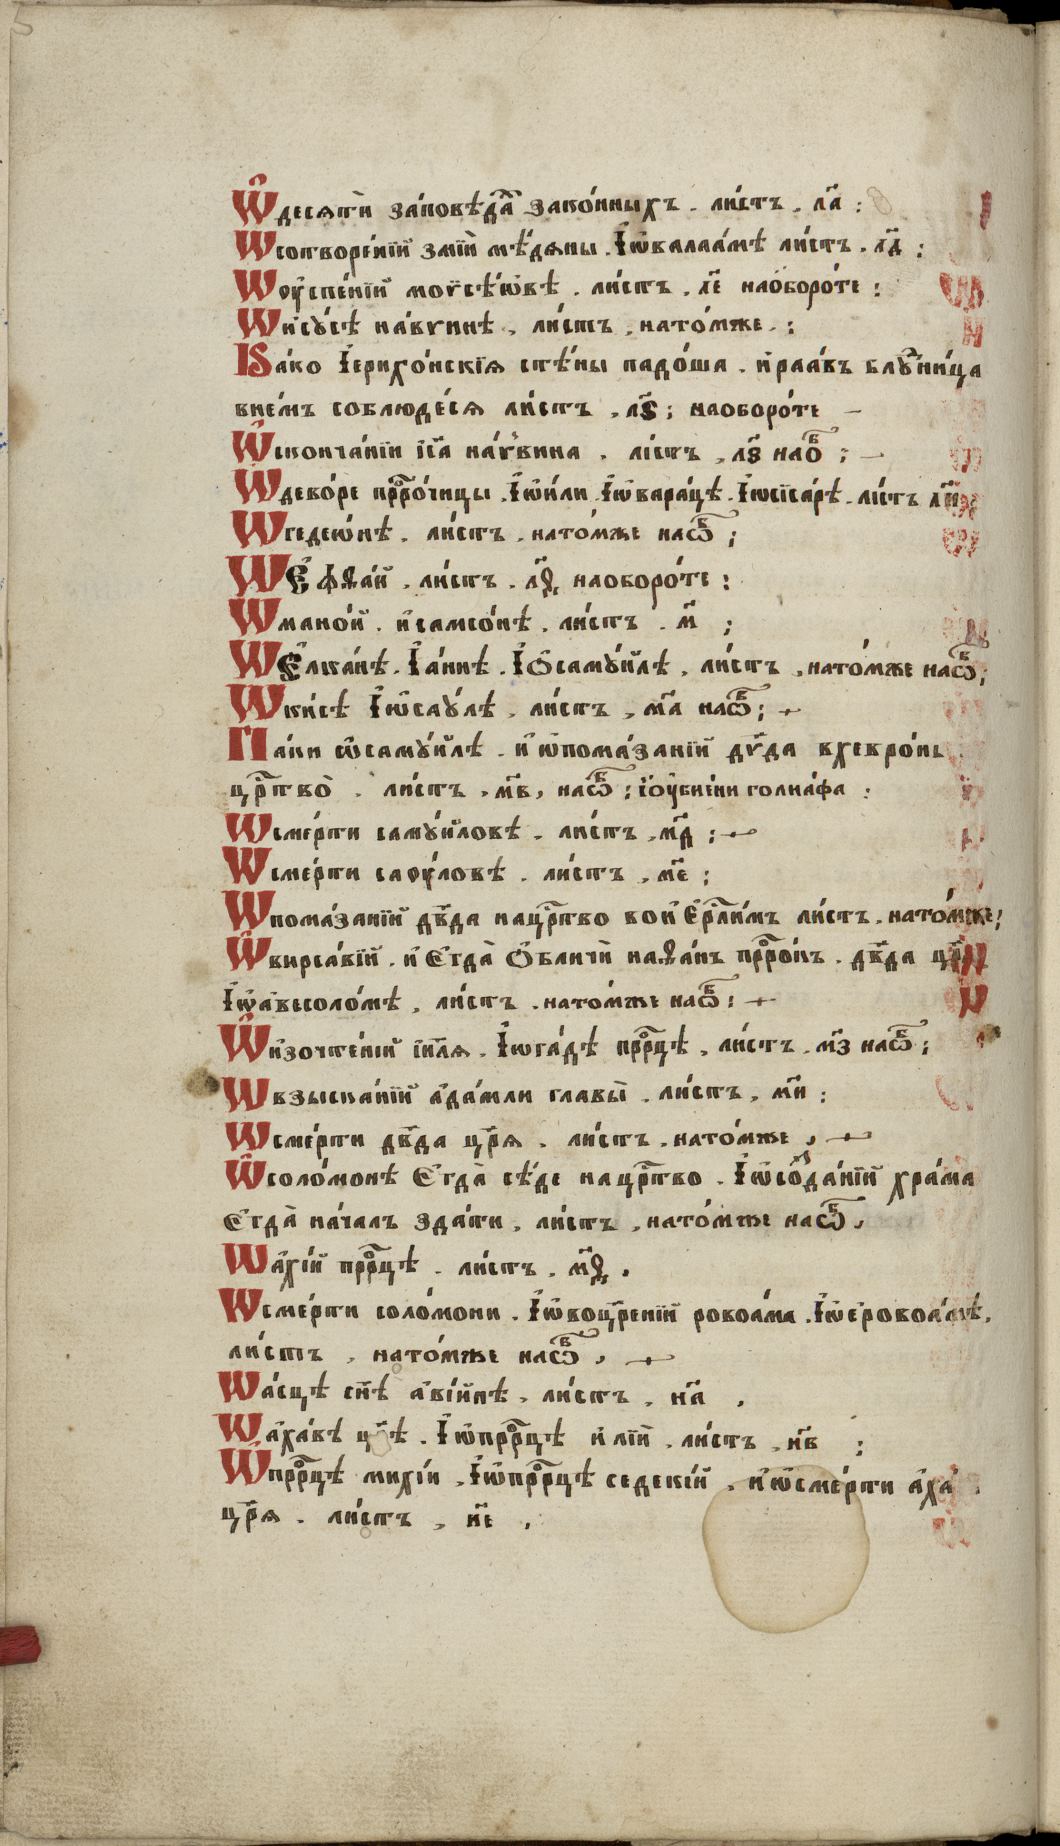 Ѽ десѧти заповѣдаⷯ зако́нныхъ . ли́стъ . л҃а :
Ѡ сотворе́нїй змїй мѣ́дѧны . І҆ ѡ҆ валаа́мѣ ли́стъ . л҃д :
Ѡ оу҆спе́нїй моѵ̈сеѡвѣ . ли́стъ . л҃е наѻборо́те :
Ѡ и҆сꙋ́сѣ на́вгинѣ , ли́стъ , нато́мже . :
Ꙗ҆́ко І҆ерихо́нскїѧ стѣ́ны падо́ша . и҆ раа́въ блꙋⷣни́ца
вне́мъ соблюде́сѧ ли́стъ , л҃ѕ ; наоборо́те
Ѽ сконча́нїи і҆и҃са наѵ́вина . лі́стъ , л҃з наѻⷠ :
Ѡ дево́ре прⷪ҇ро́чицы . І҆ ѡ҆и҆́ли . І҆ ѡ҆ вара́цѣ . І҆ ѡ҆ сїса́рѣ . ли́стъ л҃и :
Ѡ гедеѡ́нѣ . ли́стъ . нато́мже наѡⷠ ;
Ѡ Є҆фѳа́й . ли́стъ . л҃ѳ наоборо́те :
Ѡ мано́й . и҆ самсо́нѣ . ли́стъ . м҃ ;
Ѡ Є҆лка́нѣ . І҆ а́ннѣ . І҆ ѻ҆ самꙋ́йлѣ , ли́стъ , нато́мже наѡⷠ ;
Ѡ ки́сѣ І҆ ѡ҆ саꙋ́лѣ , ли́стъ , м҃а наѡⷠ ;
Па́ки ѡ҆ самꙋ́йлѣ . и҆ ѡ҆ пома́занїй дв҃да вхевро́нь
црⷭ҇тво . ли́стъ , м҃в , наѡⷠ ; і҆ ѻ҆ оу҆бие́ни голиа́фа :
Ѡ сме́рти самꙋ́йловѣ . ли́стъ , м҃д ;
Ѡ сме́рти саоу́ловѣ . ли́стъ , м҃е ;
Ѡ пома́занїй дв҃да нацрⷭ҇тво во и҆ е҆рⷭ҇ли́мъ ли́стъ . нато́мже ;
Ѽ вирса́вїй . и҆ Є҆гда̀ Ѻ҆бличѝ наѳа́нъ прⷪ҇ро́къ . дв҃да цр҃ѧ
І҆ ѡ҆ а҆весоло́мѣ , ли́стъ . нато́мже наѡⷠ ;
Ѽ и҆зочте́нїй і҆и҃лѧ . І҆ ѡ҆ га́дѣ прⷪ҇рцѣ , ли́стъ . м҃з наѡⷠ ;
Ѡ взыска́нїй а҆да́мли главы̀ . ли́стъ , м҃и ;
Ѡ сме́рти дв҃да цр҃ѧ . ли́стъ . нато́мже ,
Ѽ соло́монѣ Є҆гда̀ сѣ́де нацрⷭ҇тво . І҆ ѡ҆ соⷥда́нїй хра́ма
Є҆гда̀ нача́лъ зда́ти . ли́стъ , нато́мже наѡⷠ ,
Ѡ а҆хі́й прⷪ҇рцѣ . ли́стъ . м҃ѳ .
Ѡ сме́рти соло́мони . І҆ ѡ҆ воцр҃енїй ровоа́ма . І҆ ѡ҆ є҆ровоа́мѣ ,
ли́стъ , нато́мже наѡⷠ ,
Ѡ а́сцѣ сн҃ѣ а҆ві́йнѣ , ли́стъ , н҃а ,
Ѡ а҆ха́вѣ цр҃ѣ . І҆ ѡ҆ прⷪ҇рцѣ и҆лїй . ли́стъ , н҃в ;
Ѽ прⷪ҇рцѣ михі́и , І҆ ѡ҆ прⷪ҇рцѣ седекі́й , и҆ ѡ҆ сме́рти а҆ха́
цр҃ѧ . ли́стъ , н҃е ,